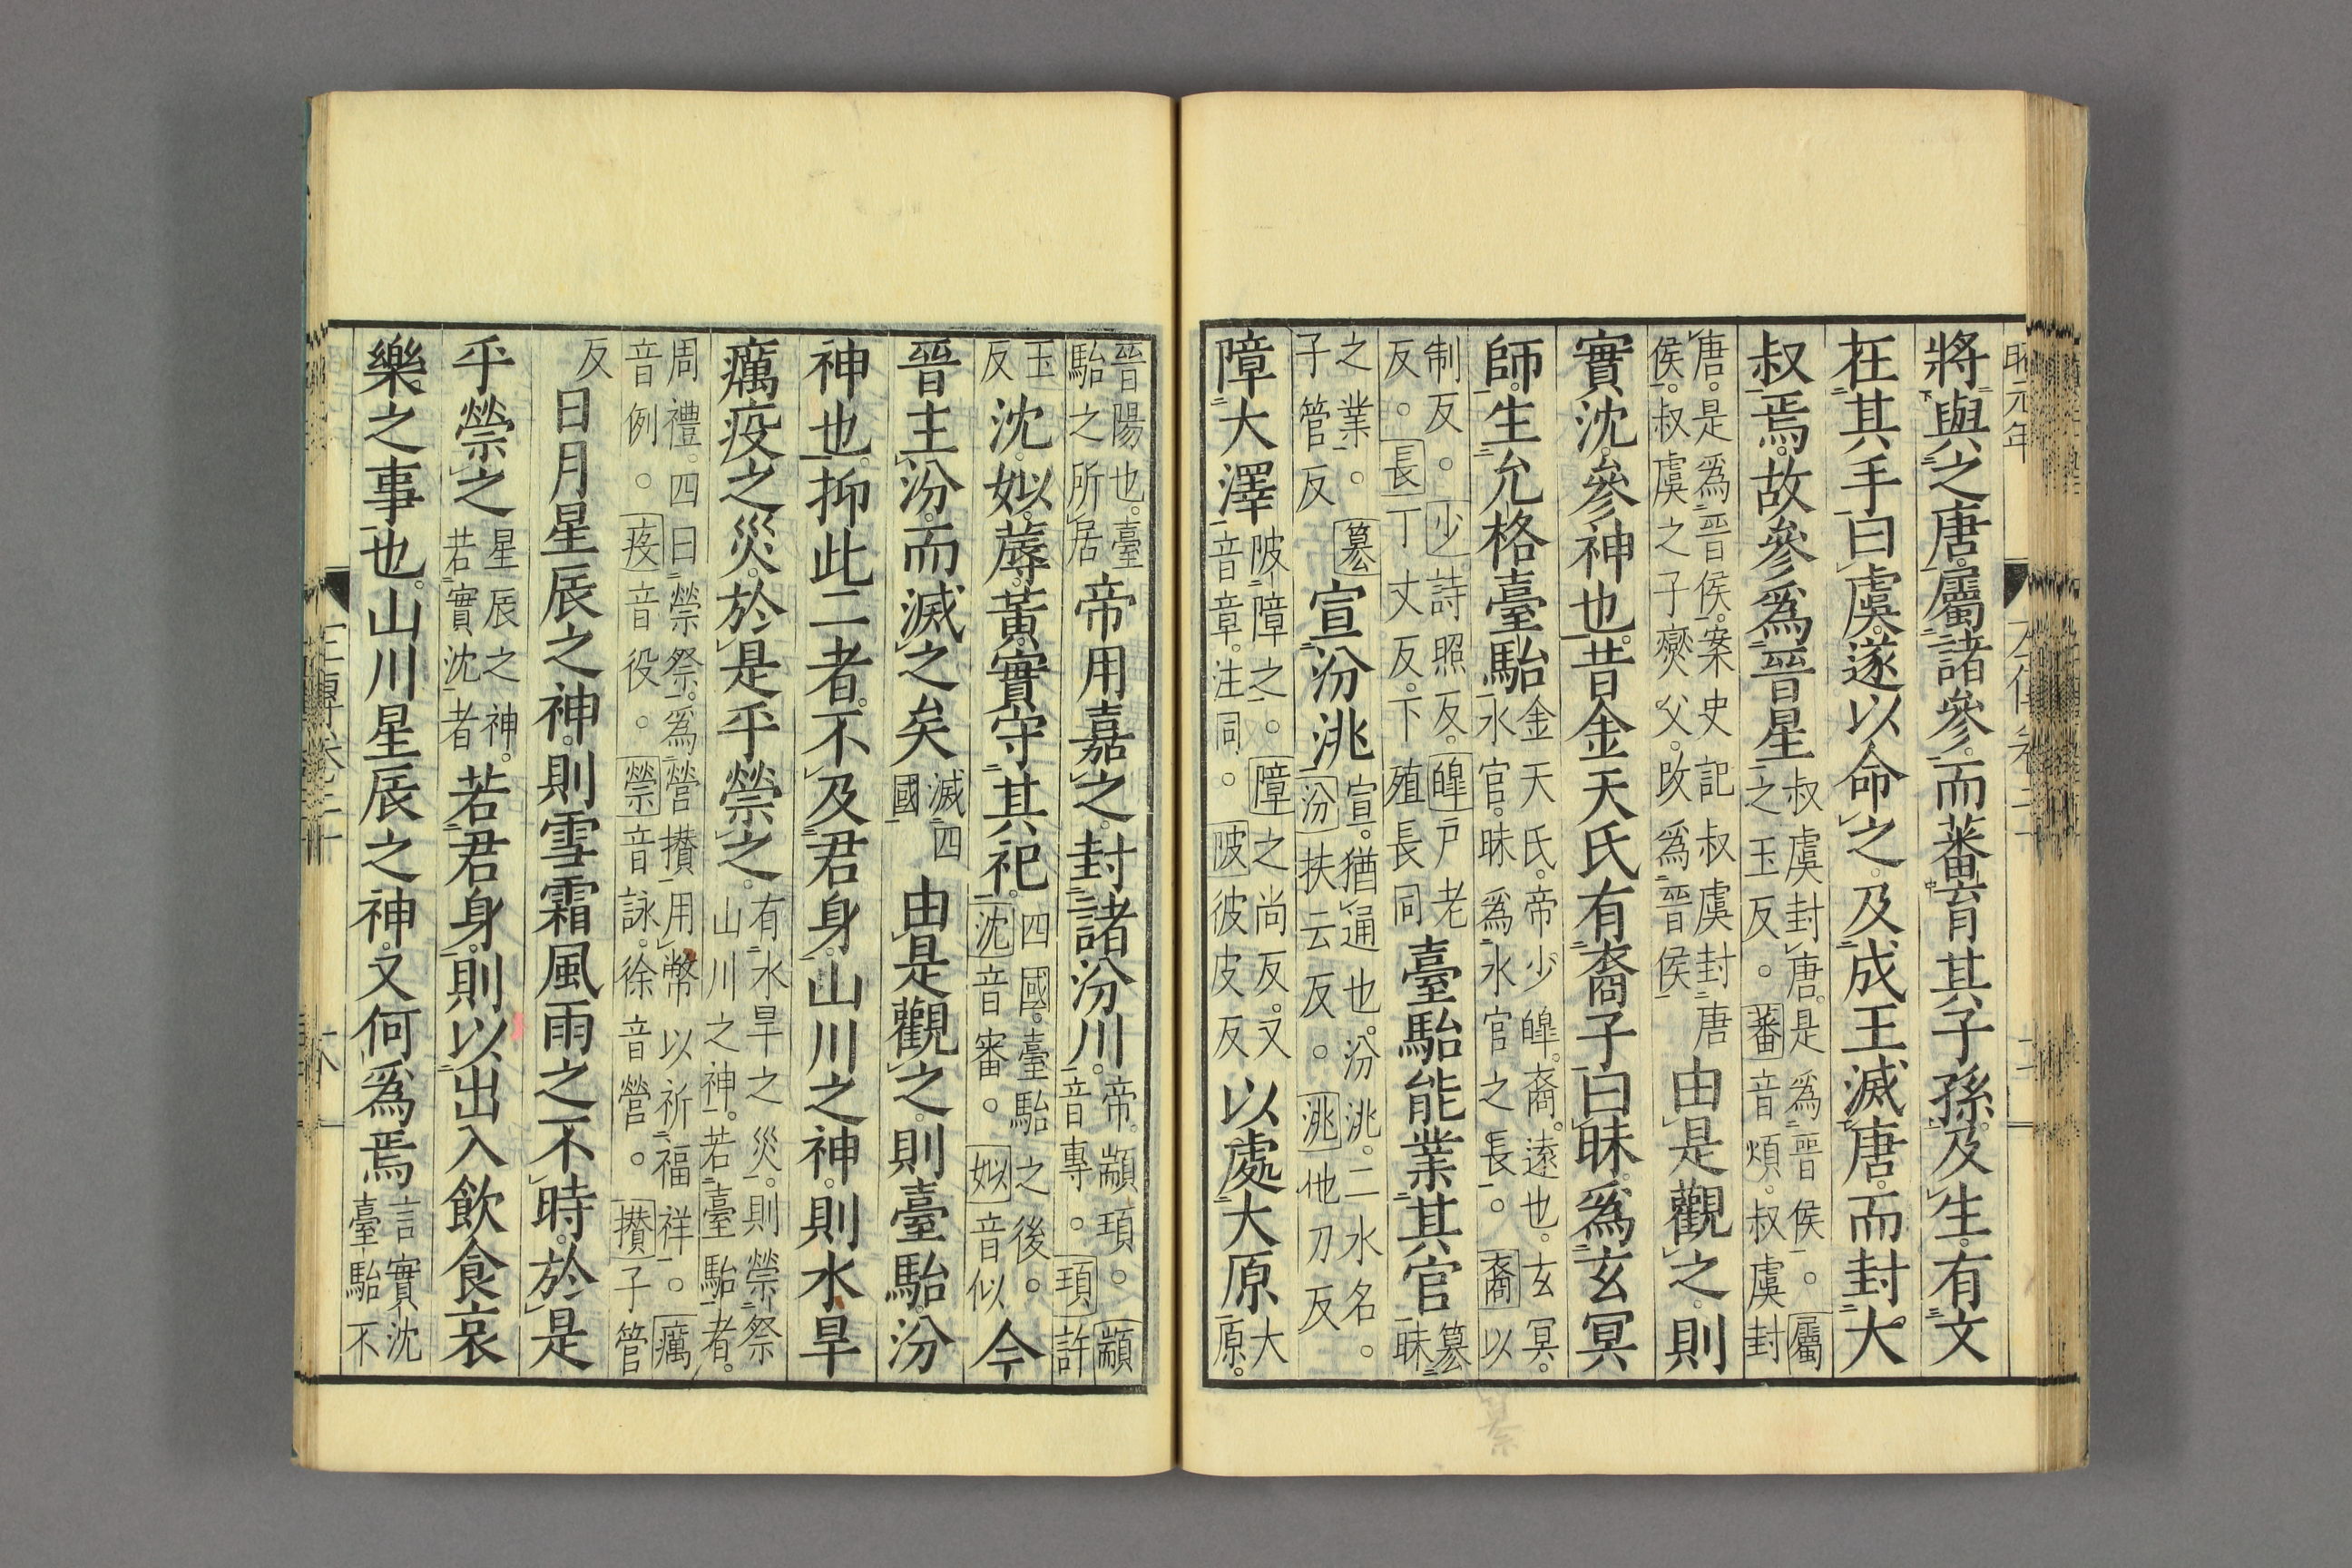 昭元年
將與之唐屬諸參而蕃育其子孫及生有文
在其手曰虞遂以命之及成王滅唐而封大
叔焉故參爲晉星叔虞封唐是爲晉侯。屬
之玉反。蕃音煩叔虞封
唐是爲晉侯案史記叔虞封唐
侯叔虞之子燮父改爲晉侯由是觀之則
實沈參神也昔金天氏有裔子曰昧爲玄冥
師生允格臺駘金天氏帝少皞裔遠也玄冥
水官昧爲水官之長。裔以
制反。少詩照反皞戸老
反。長丁丈反下殖長同臺駘能業其官纂
昧
之業。纂
子管反宣汾洮宣猶通也汾洮二水名。
汾扶云反。洮他刀反
障大澤陂障之。障之尚反又
音章注同。陂彼皮反以處大原大
原
晉陽也臺
駘之所居帝用嘉之封諸汾川帝顓頊。顓
音專。頊許
玉
反沈姒蓐黃實守其祀四國臺駘之後。
沈音審。姒音似今
晉主汾而滅之矣滅四
國由是觀之則臺駘汾
神也抑此二者不及君身山川之神則水旱
癘疫之災於是乎禜之有水旱之災則禜祭
山川之神若臺駘者
周禮四曰禜祭爲營攢用幣以祈福祥。癘
音例。疫音役。禜音詠徐音營。攢子管
反日月星辰之神則雪霜風雨之不時於是
乎禜之星辰之神
若實沈者若君身則以出入飲食哀
樂之事也山川星辰之神又何爲焉言實沈
臺駘不